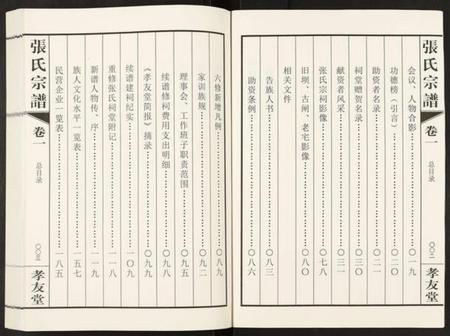 張氏宗譜
卷一
總目录
〇〇二
孝友堂
会议、人物合影……〇一九
功德榜（引言）……〇二〇
助资者名录……〇二一
祠堂赠贺名录……〇三〇
献资者风采……〇三一
张氏宗祠影像……〇七八
旧坝、古闸、老宅影像……〇八一
相关文件
告族人书……〇八三
助资条例……〇八六
六修新增凡例……〇八九
家训族规……〇九二
理事会、工作班子职责范围……〇九五
续谱修祠费用支出明细……〇九八
《孝友堂简报》摘录……〇九九
续谱建祠纪实……一〇九
重修张氏祠堂附记……一一八
新谱人物传、序……一一九
族人文化水平一览表……一五七
民营企业一览表……一八五
張氏宗譜
卷一
总目录
〇〇三
孝友堂